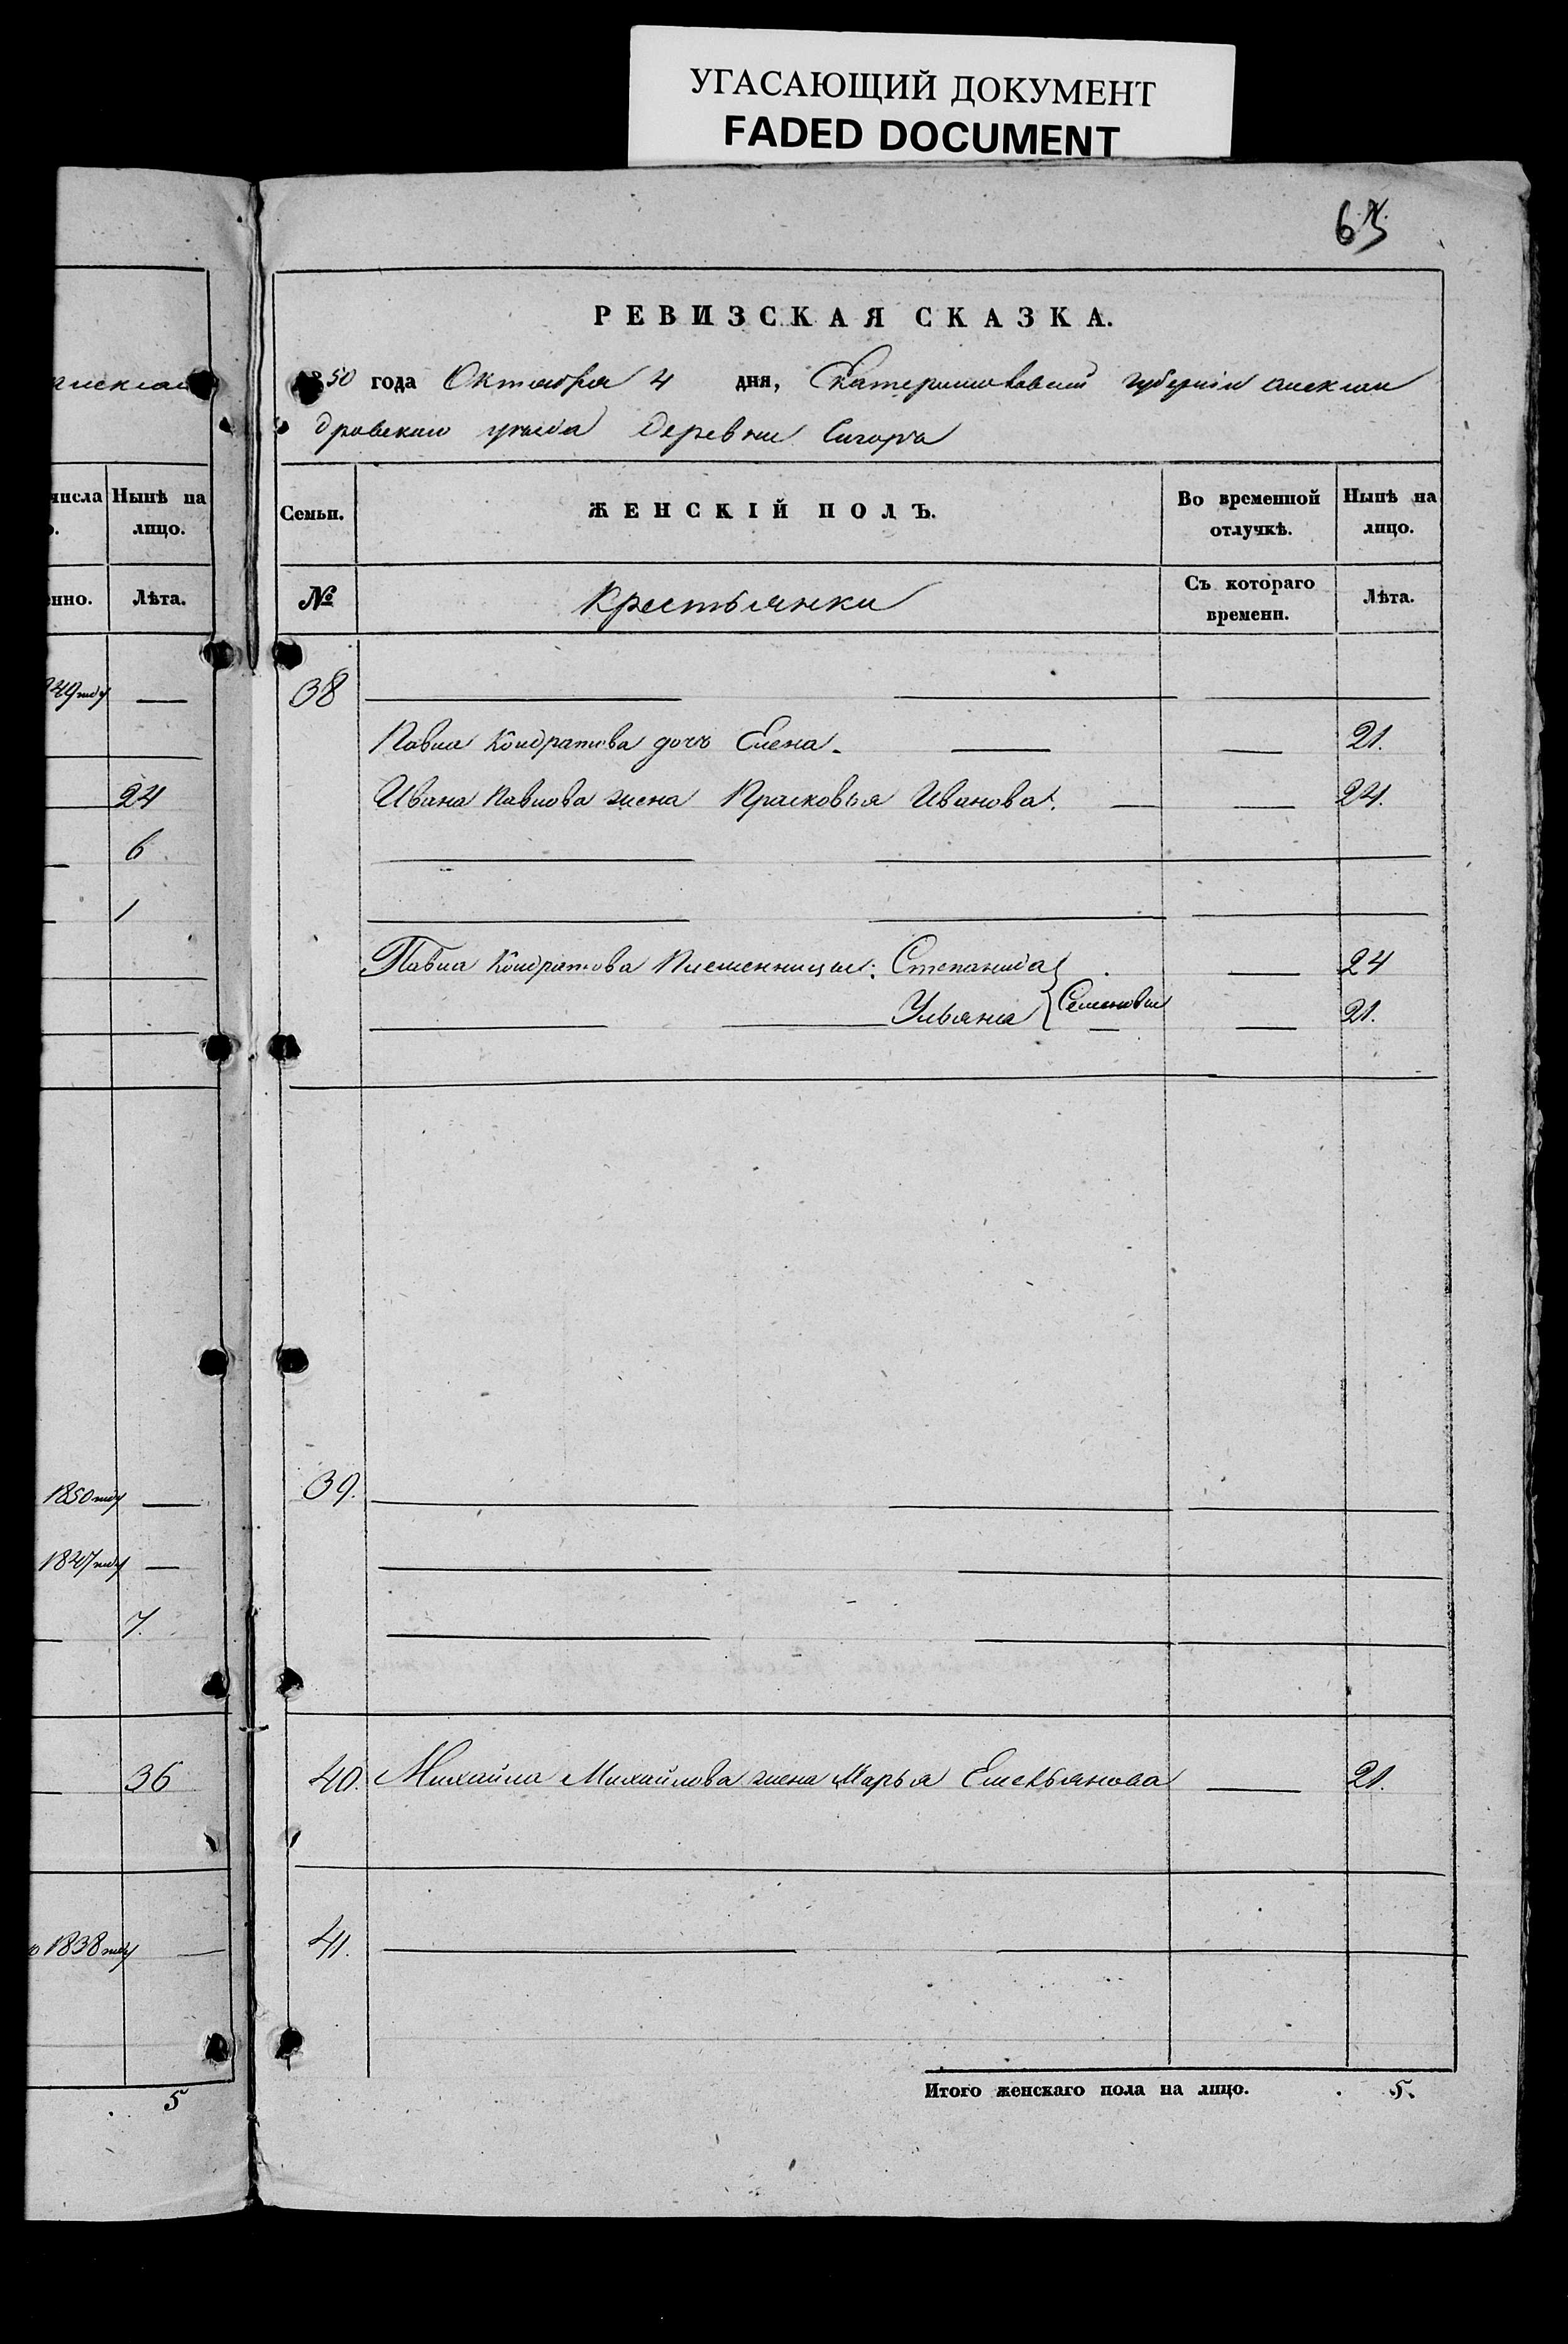 УГАСАЮЩИЙ ДОКУМЕНТ
FADED DOCUMENT
РЕВИЗСКАЯ СКАЗКА.
50 года Октября 4 дня, Екатеринославской губернiи алексан
дровскаго уезда деревни
числа Нынѣ на
лицо.
нно. Лѣта.
249 году —
24
6
1
1850 году —
1847 году —
7.
36
1838 году —
5
Семьи. ЖЕНСКІЙ ПОЛЪ. Во временной отлучкѣ. Нынѣ на лицо.
№ Крестьянки Съ котораго времени. Лѣта.
38
Павла Кондратова дочь Елена. — — 21.
Ивана Павлова жена Прасковья Иванова. — — 24.
Павла Кондратова Племенницы: Степанида — 24
Ульяна } Семеновы — 21.
39.
40. Михайла Михайлова жена Марья Емельянова — 21.
41.
Итого женскаго пола на лицо. 5.